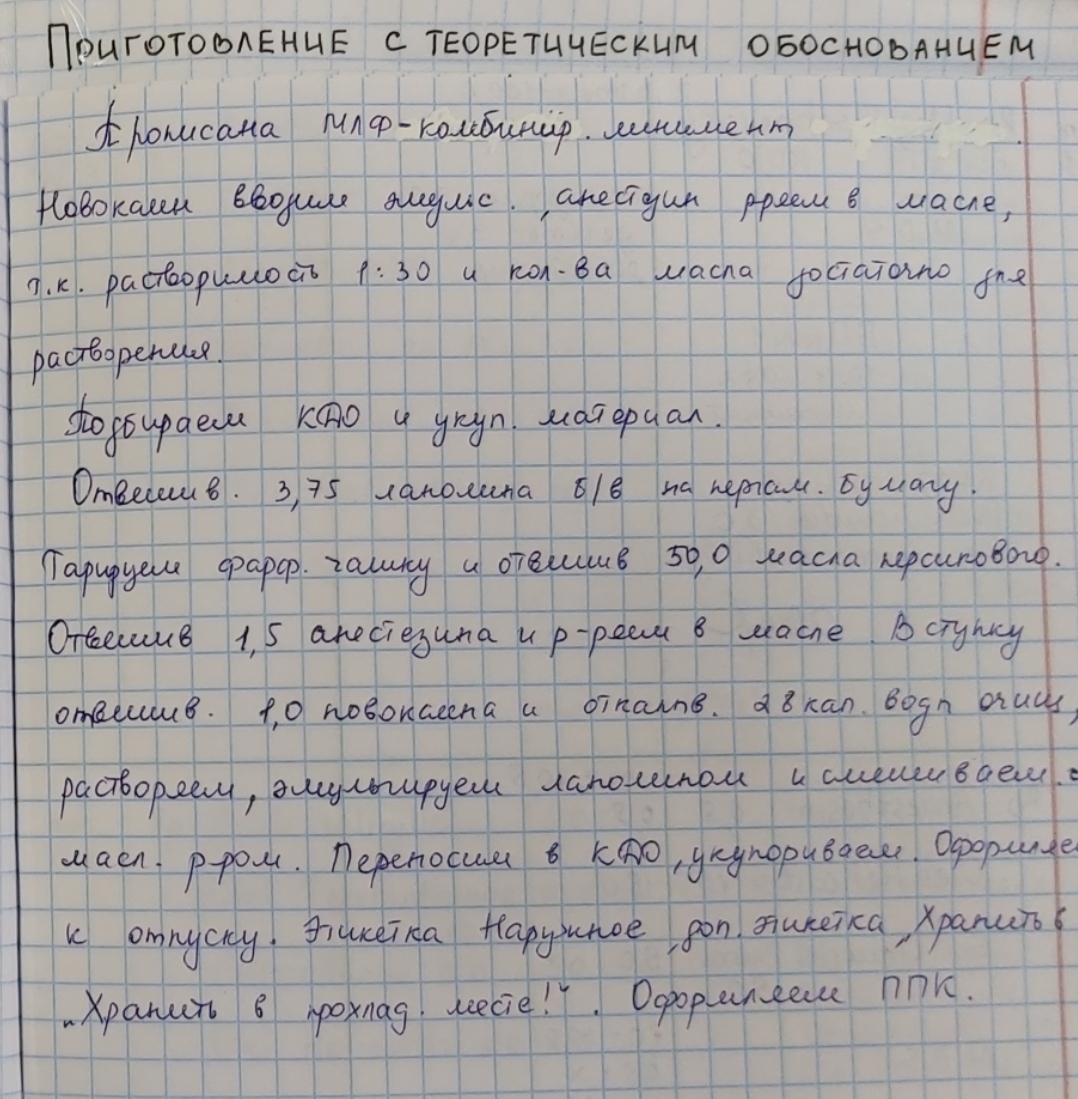 ПРИГОТОВЛЕНИЕ С ТЕОРЕТИЧЕСКИМ ОБОСНОВАНИЕМ
Прописана МЛФ-комбинир. линимент
Новокаин вводим эмульс., анестезин рряем в масле,
т.к. растворимость 1:30 и кол-ва масла достаточно для
растворения.
Подбираем КДО и укуп. материал.
Отвешив. 3,75 ланолина б/в на пергам. бумагу.
Тарируем фарф. чашку и отвешив 50,0 масла персикового.
Отвешив 1,5 анестезина и р-ряем в масле. В ступку
отвешив. 1,0 новокаина и откапыв. 28 кап. воды очищ,
растворяем, эмульгируем ланолином и смешиваем с
масл. р-ром. Переносим в КДО, укупориваем. Оформляе
к отпуску. Этикетка Наружное, доп. этикетка „Хранить в
„Хранить в прохлад. месте!“. Оформляем ППК.